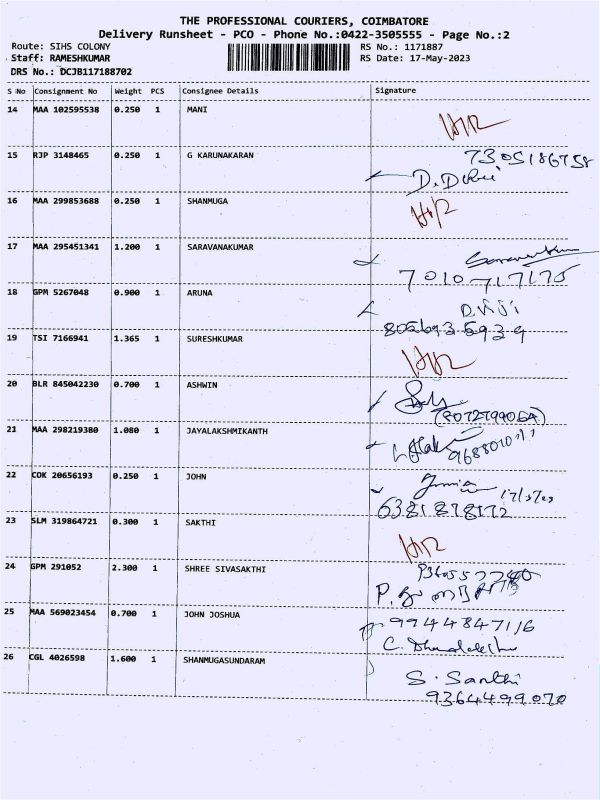 THE PROFESSIONAL COURIERS, COIMBATORE
Delivery Runsheet - PCO - Phone No.:0422-3505555 - Page No.:2
Route: SIHS COLONY RS No.: 1171887
Staff: RAMESHKUMAR RS Date: 17-May-2023
DRS No.: DCJB117188702
S No Consignment No Weight PCS Consignee Details Signature
14 MAA 102595538 0.250 1 MANI
15 RJP 3148465 0.250 1 G KARUNAKARAN 7305186758
D.Devi
16 MAA 299853688 0.250 1 SHANMUGA
17 MAA 295451341 1.200 1 SARAVANAKUMAR
7010717175
18 GPM 5267048 0.900 1 ARUNA
8056935939
19 TSI 7166941 1.365 1 SURESHKUMAR
20 BLR 845042230 0.700 1 ASHWIN
21 MAA 298219380 1.080 1 JAYALAKSHMIKANTH
22 COK 20656193 0.250 1 JOHN
6381878172
23 SLM 319864721 0.300 1 SAKTHI
24 GPM 291052 2.300 1 SHREE SIVASAKTHI
25 MAA 569023454 0.700 1 JOHN JOSHUA 9944847116
26 CGL 4026598 1.600 1 SHANMUGASUNDARAM
S. Santhi
9364499070